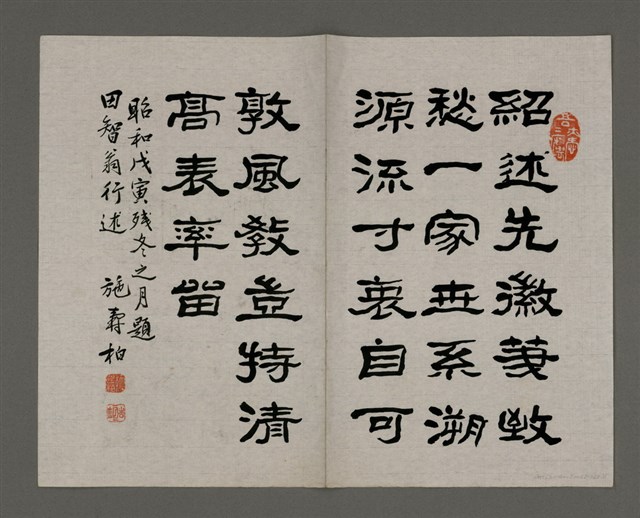 紹述先徽致
愁一家世系溯
源流寸衷自可
敦風教豈特清
高表率留
昭和戊寅残冬之月題
田智翁行述 施壽柏